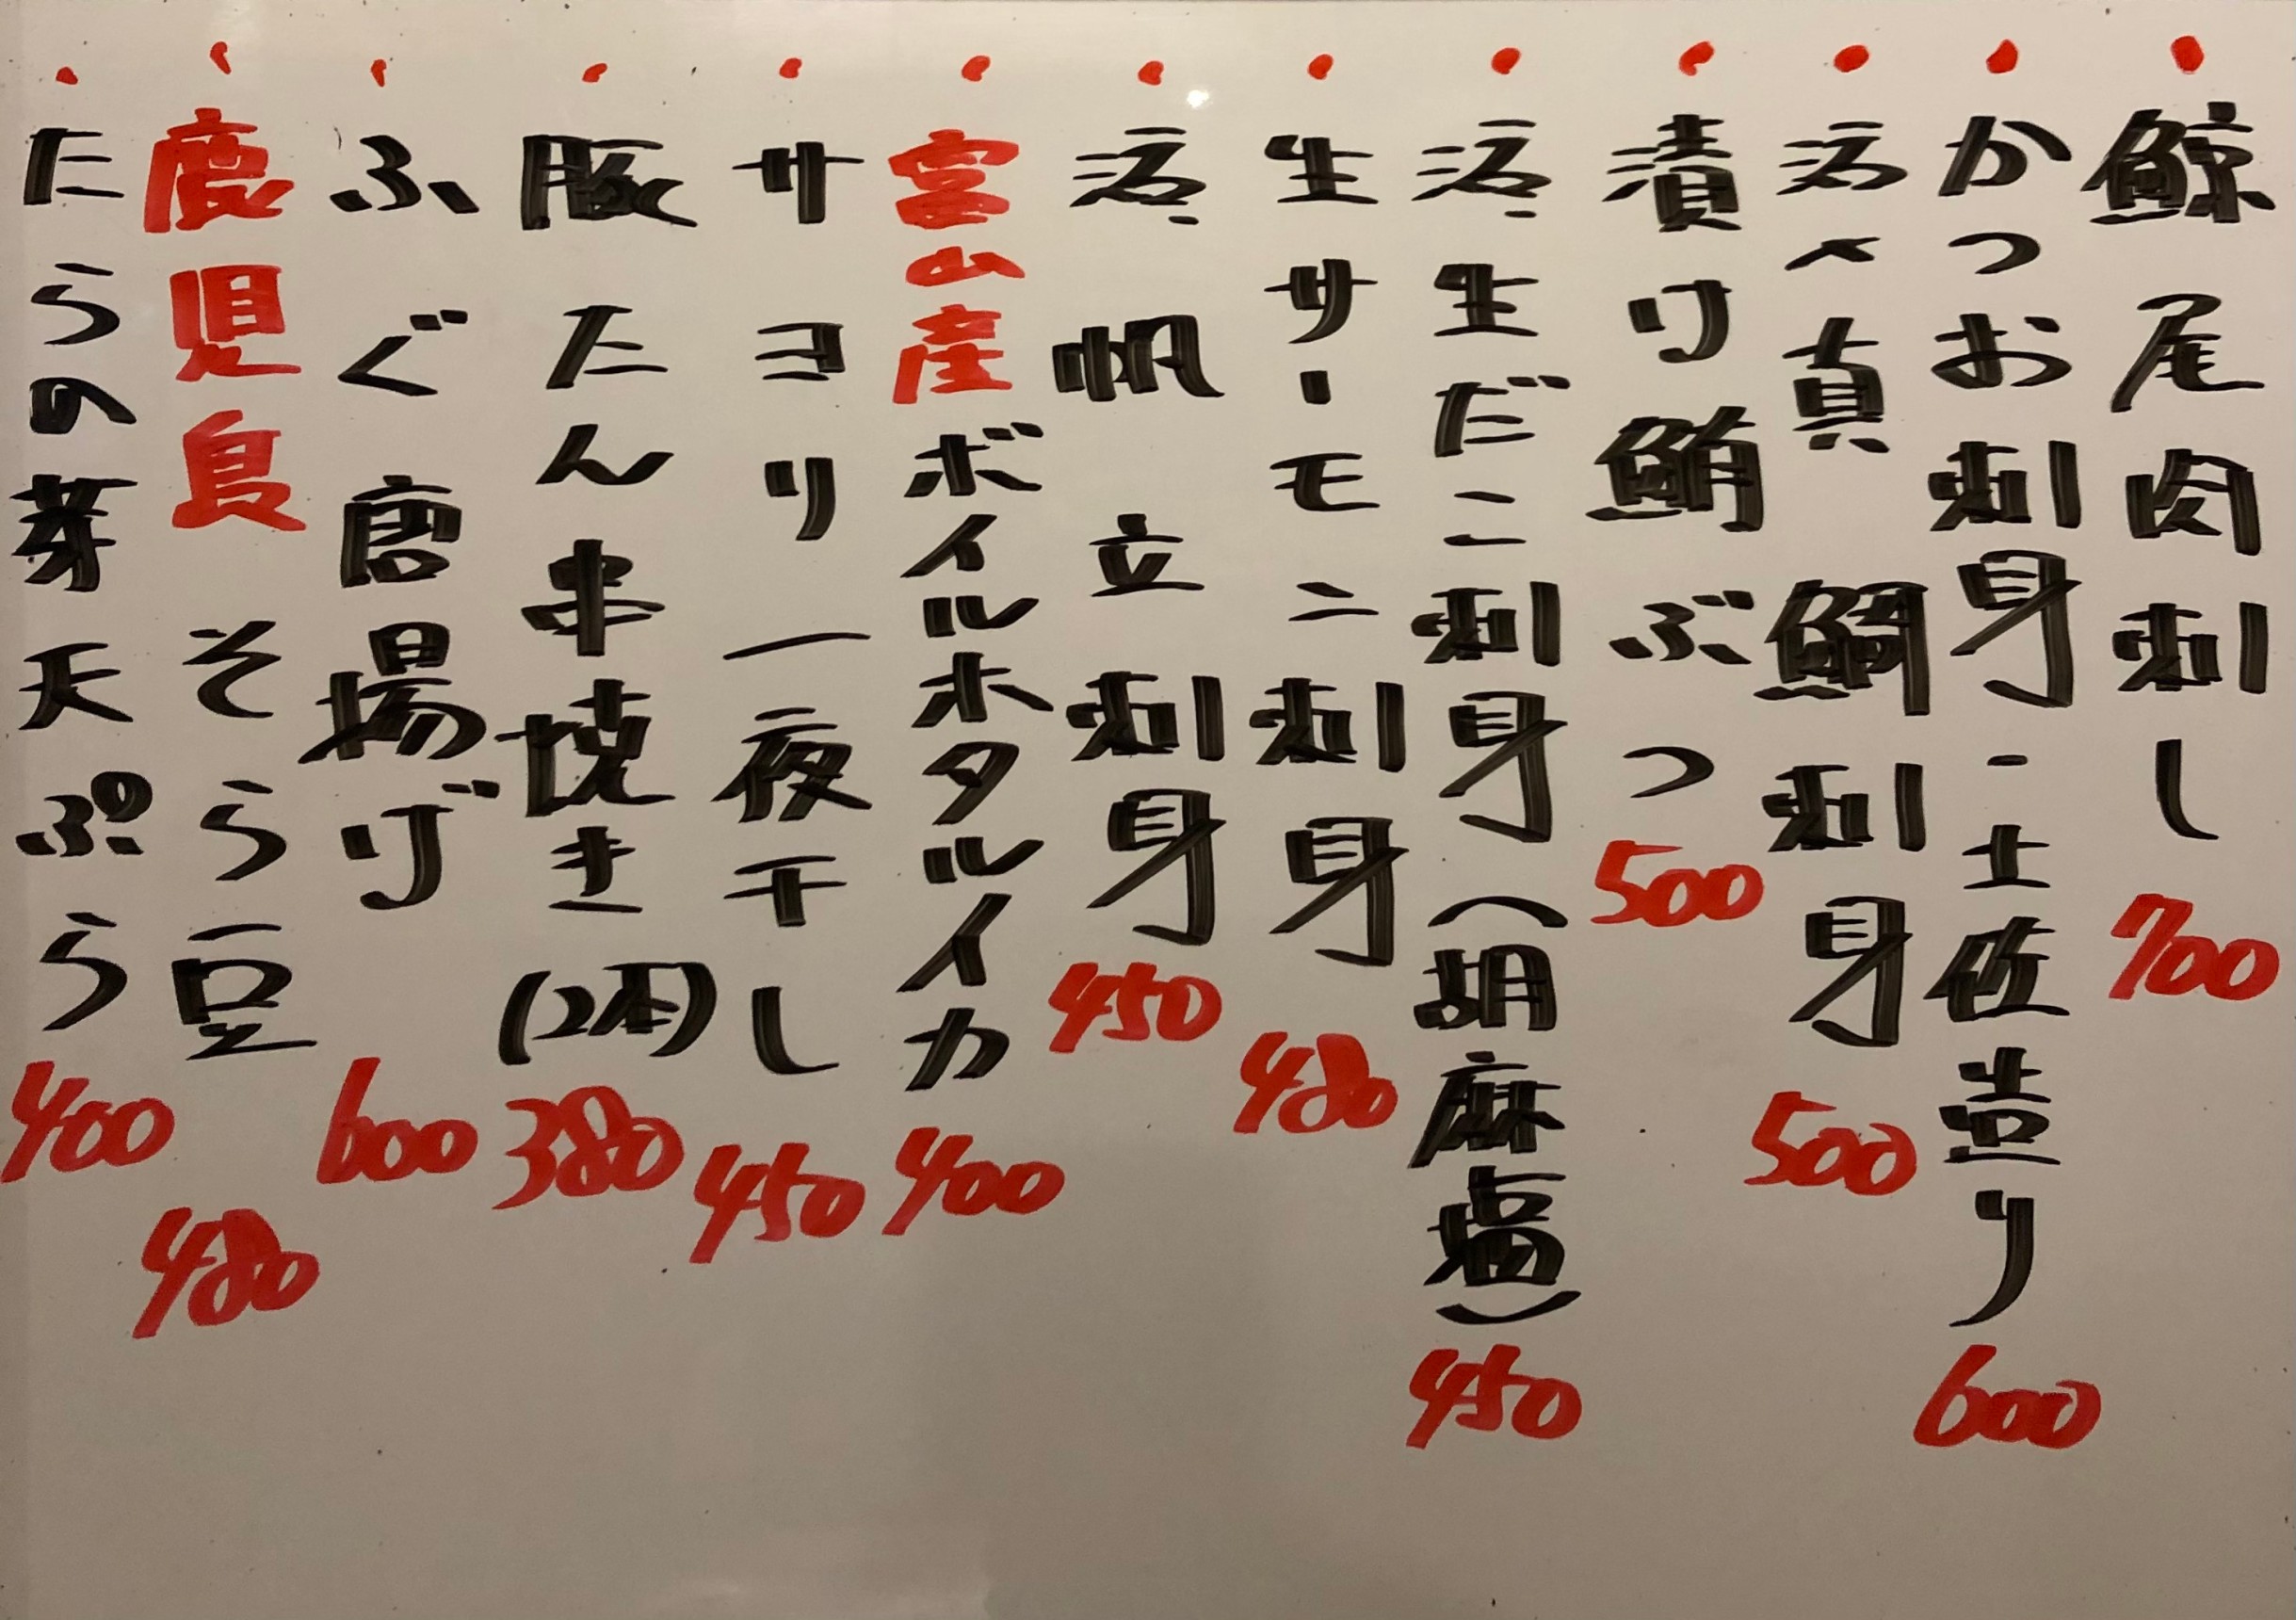 ・鯨尾肉刺し 700
・かつお刺身・土佐造り 600
・活〆真鯛刺身 500
・漬け鮪ぶつ 500
・活生だこ刺身(胡麻塩) 450
・生サーモン刺身 480
・活帆立刺身 450
・富山産ボイルホタルイカ 400
・サヨリ一夜干し 450
・豚たん串焼き(2本) 380
・ふぐ唐揚げ 600
・鹿児島そら豆 480
・たらの芽天ぷら 400